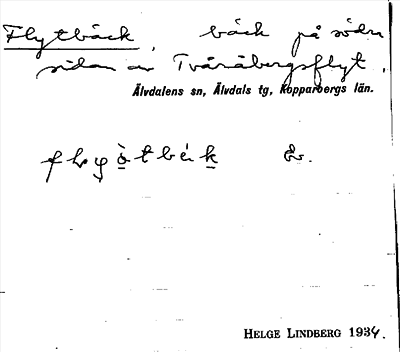 Flytbäck, bäck på södra
sidan av Tvåråbergsflyt.
Älvdalens sn, Älvdals tg, Kopparbergs län.
HELGE LINDBERG 1934.